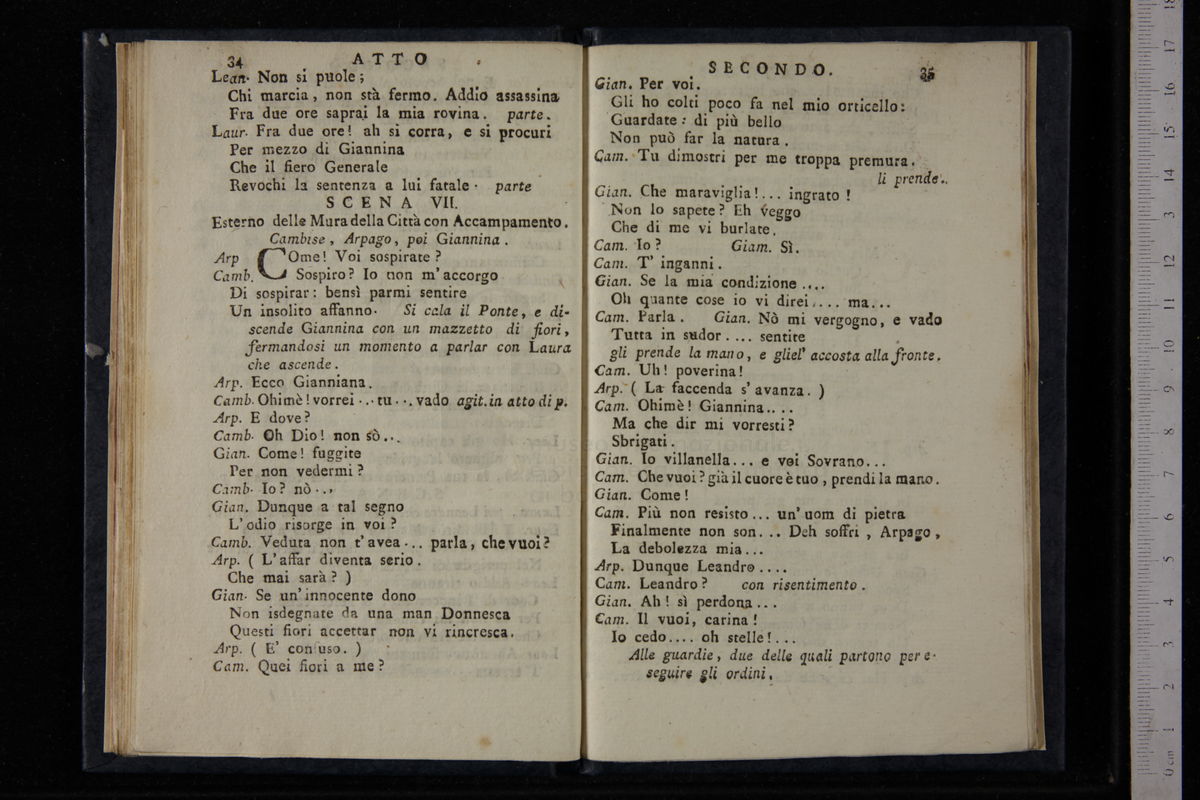 34 ATTO
Lean. Non si puole;
Chi marcia, non stà fermo. Addio assassina
Fra due ore saprai la mia rovina. parte.
Laur. Fra due ore! ah si corra, e si procuri
Per mezzo di Giannina
Che il fiero Generale
Revochi la sentenza a lui fatale. parte
SCENA VII.
Esterno delle Mura della Città con Accampamento.
Cambise, Arpago, poi Giannina.
Arp COme! Voi sospirate?
Camb. Sospiro? Io non m'accorgo
Di sospirar: bensì parmi sentire
Un insolito affanno. Si cala il Ponte, e di-
scende Giannina con un mazzetto di fiori,
fermandosi un momento a parlar con Laura
che ascende.
Arp. Ecco Gianniana.
Camb. Ohimè! vorrei ... tu ... vado agit. in atto di p.
Arp. E dove?
Camb. Oh Dio! non sò...
Gian. Come! fuggite
Per non vedermi?
Camb. Io? nò...
Gian. Dunque a tal segno
L'odio risorge in voi?
Camb. Veduta non t'avea... parla, che vuoi?
Arp. ( L'affar diventa serio.
Che mai sarà? )
Gian. Se un'innocente dono
Non isdegnate da una man Donnesca
Questi fiori accettar non vi rincresca.
Arp. ( E' confuso. )
Cam. Quei fiori a me?
SECONDO. 35
Gian. Per voi.
Gli ho colti poco fa nel mio orticello:
Guardate: di più bello
Non può far la natura.
Cam. Tu dimostri per me troppa premura.
li prende..
Gian. Che maraviglia!... ingrato!
Non lo sapete? Eh veggo
Che di me vi burlate.
Cam. Io? Giam. Sì.
Cam. T'inganni.
Gian. Se la mia condizione ....
Oh quante cose io vi direi.... ma...
Cam. Parla. Gian. Nò mi vergogno, e vado
Tutta in sudor.... sentite
gli prende la mano, e gliel' accosta alla fronte.
Cam. Uh! poverina!
Arp. ( La faccenda s'avanza. )
Cam. Ohimè! Giannina....
Ma che dir mi vorresti?
Sbrigati.
Gian. Io villanella... e voi Sovrano...
Cam. Che vuoi? già il cuore è tuo, prendi la mano.
Gian. Come!
Cam. Più non resisto... un'uom di pietra
Finalmente non son... Deh soffri, Arpago,
La debolezza mia...
Arp. Dunque Leandro....
Cam. Leandro? con risentimento.
Gian. Ah! sì perdona...
Cam. Il vuoi, carina!
Io cedo.... oh stelle!...
Alle guardie, due delle quali partono per e-
seguire gli ordini.